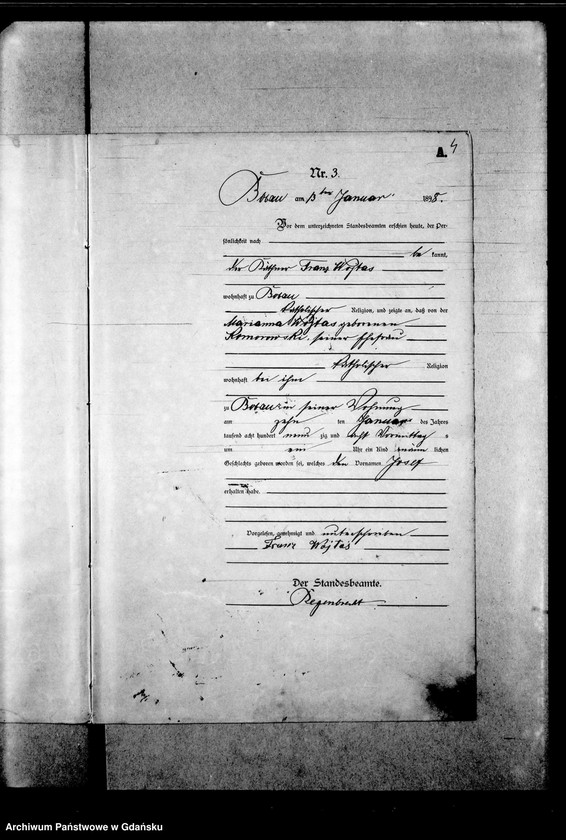 A. 4
Nr. 3.
Bosau am 13ten Januar 1898.
Vor dem unterzeichneten Standesbeamten erschien heute, der Per-
sönlichkeit nach
be kannt,
der Käthner Franz Wojtas
wohnhaft zu Bosau
katholischer Religion, und zeigte an, daß von der
Marianna Wojtas geborenen
Komorowski, seiner Ehefrau
katholischer Religion
wohnhaft bei ihm
zu Bosau in seiner Wohnung
am zehn ten Januar des Jahres
tausend acht hundert neun zig und acht Vormittag s
um ein Uhr ein Kind männ lichen
Geschlechts geboren worden sei, welches den Vornamen Josef
erhalten habe.
Vorgelesen, genehmigt und unterschrieben
Franz Wojtas
Der Standesbeamte.
Regenbrecht
Archiwum Państwowe w Gdańsku